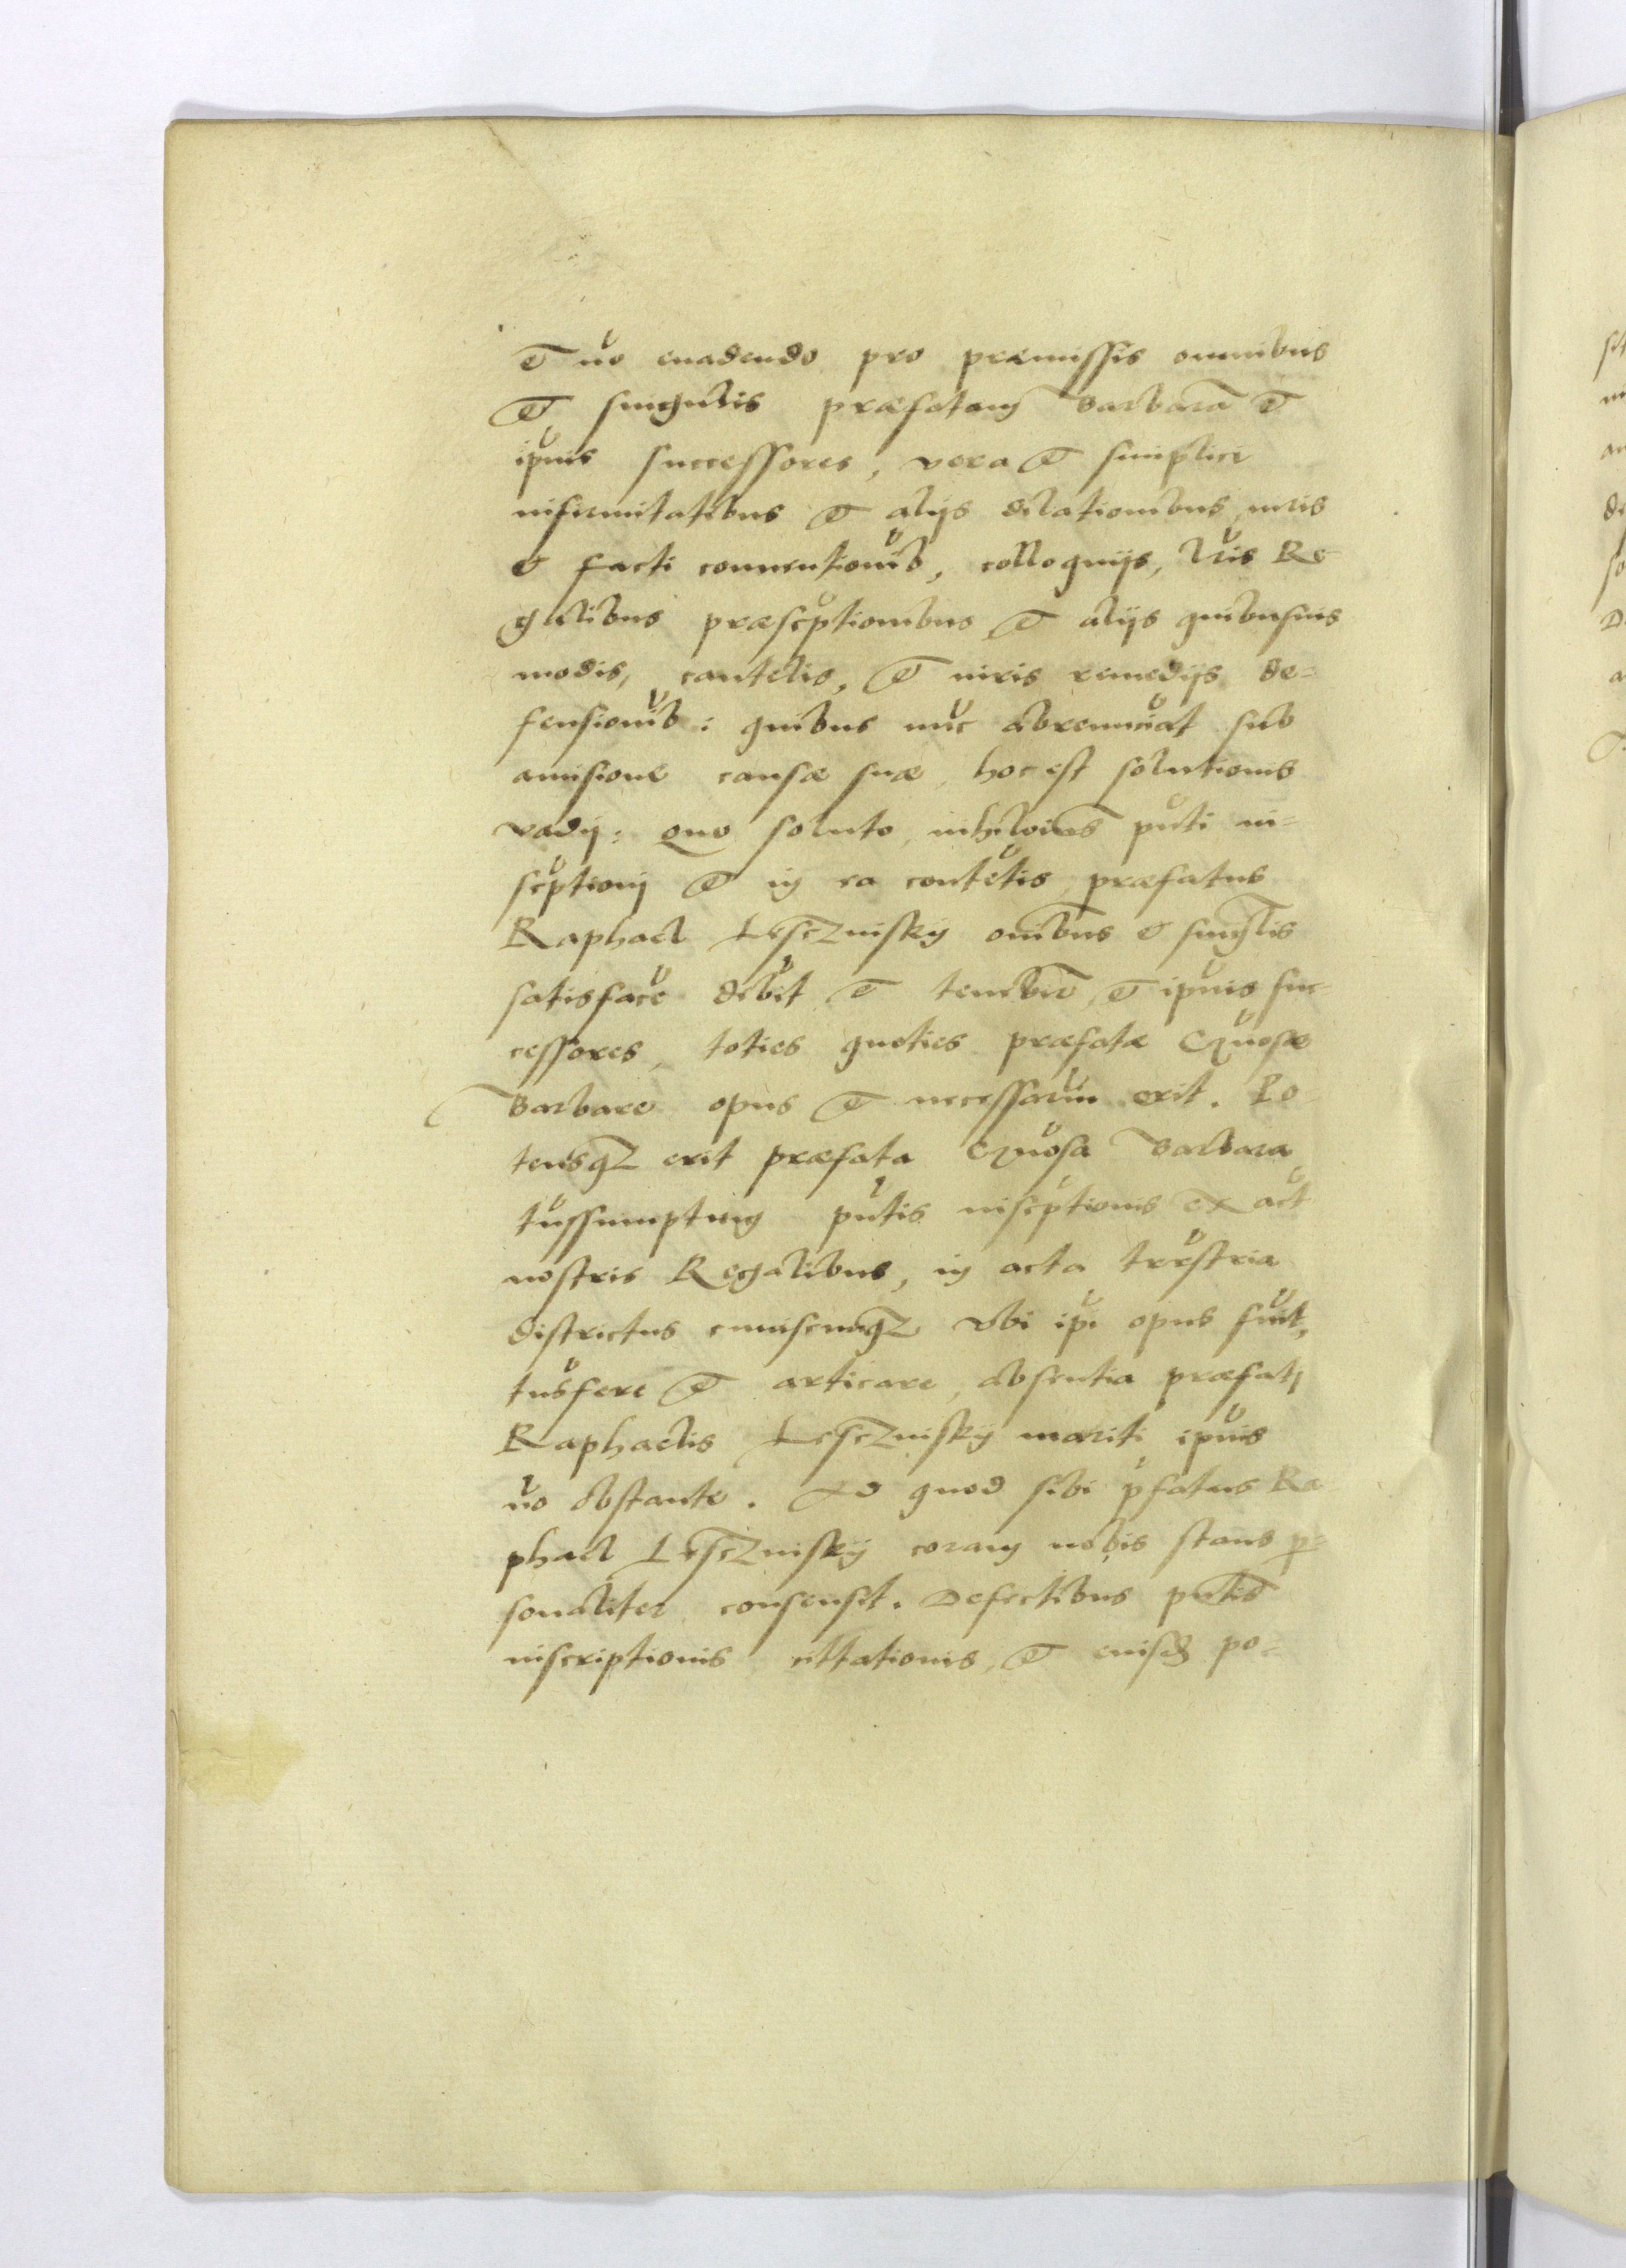 et no euadendo pro præmissis omnibus
et singulis præfatam Barbara et
ipius successores, vera et simplice
infirmitatibus et alijs dilationibus, iuris
et facti conuentionib, colloquijs, lris Re-
galibus præscptionibus et alijs quibusuis
modis, cautelis, et iuris remedijs de=
fensionib: quibus nuc abrenuciat sub
amisione causæ suæ, hoc est solutionis
vadij: Quo soluto, nihiloius pnti in=
scptionj et in ea contetis, præfatus
Raphael Lesczinsky oibus et singlis
satisface debit et tenebit, et ipius suc=
cessores, toties quoties præfatæ Gnosæ
Barbare opus et necessarium erit. Po-
tensqz erit præfata Gnosa Barbara
tussumptum pntis inscptionis ex act
nostris Regalibus, in acta trrstria
districtus cuiuscunqz vbi ipi opus fuit,
tusfere et articare, absentia præfatj
Raphaelis Lesczinsky mariti ipius
no obstante. Ad quod sibi pfatus Ra
phael Lesczinsky coram nobis stans p=
sonaliter consensit. Defectibus pntis
inscriptionis cittationis, et eiusd po=